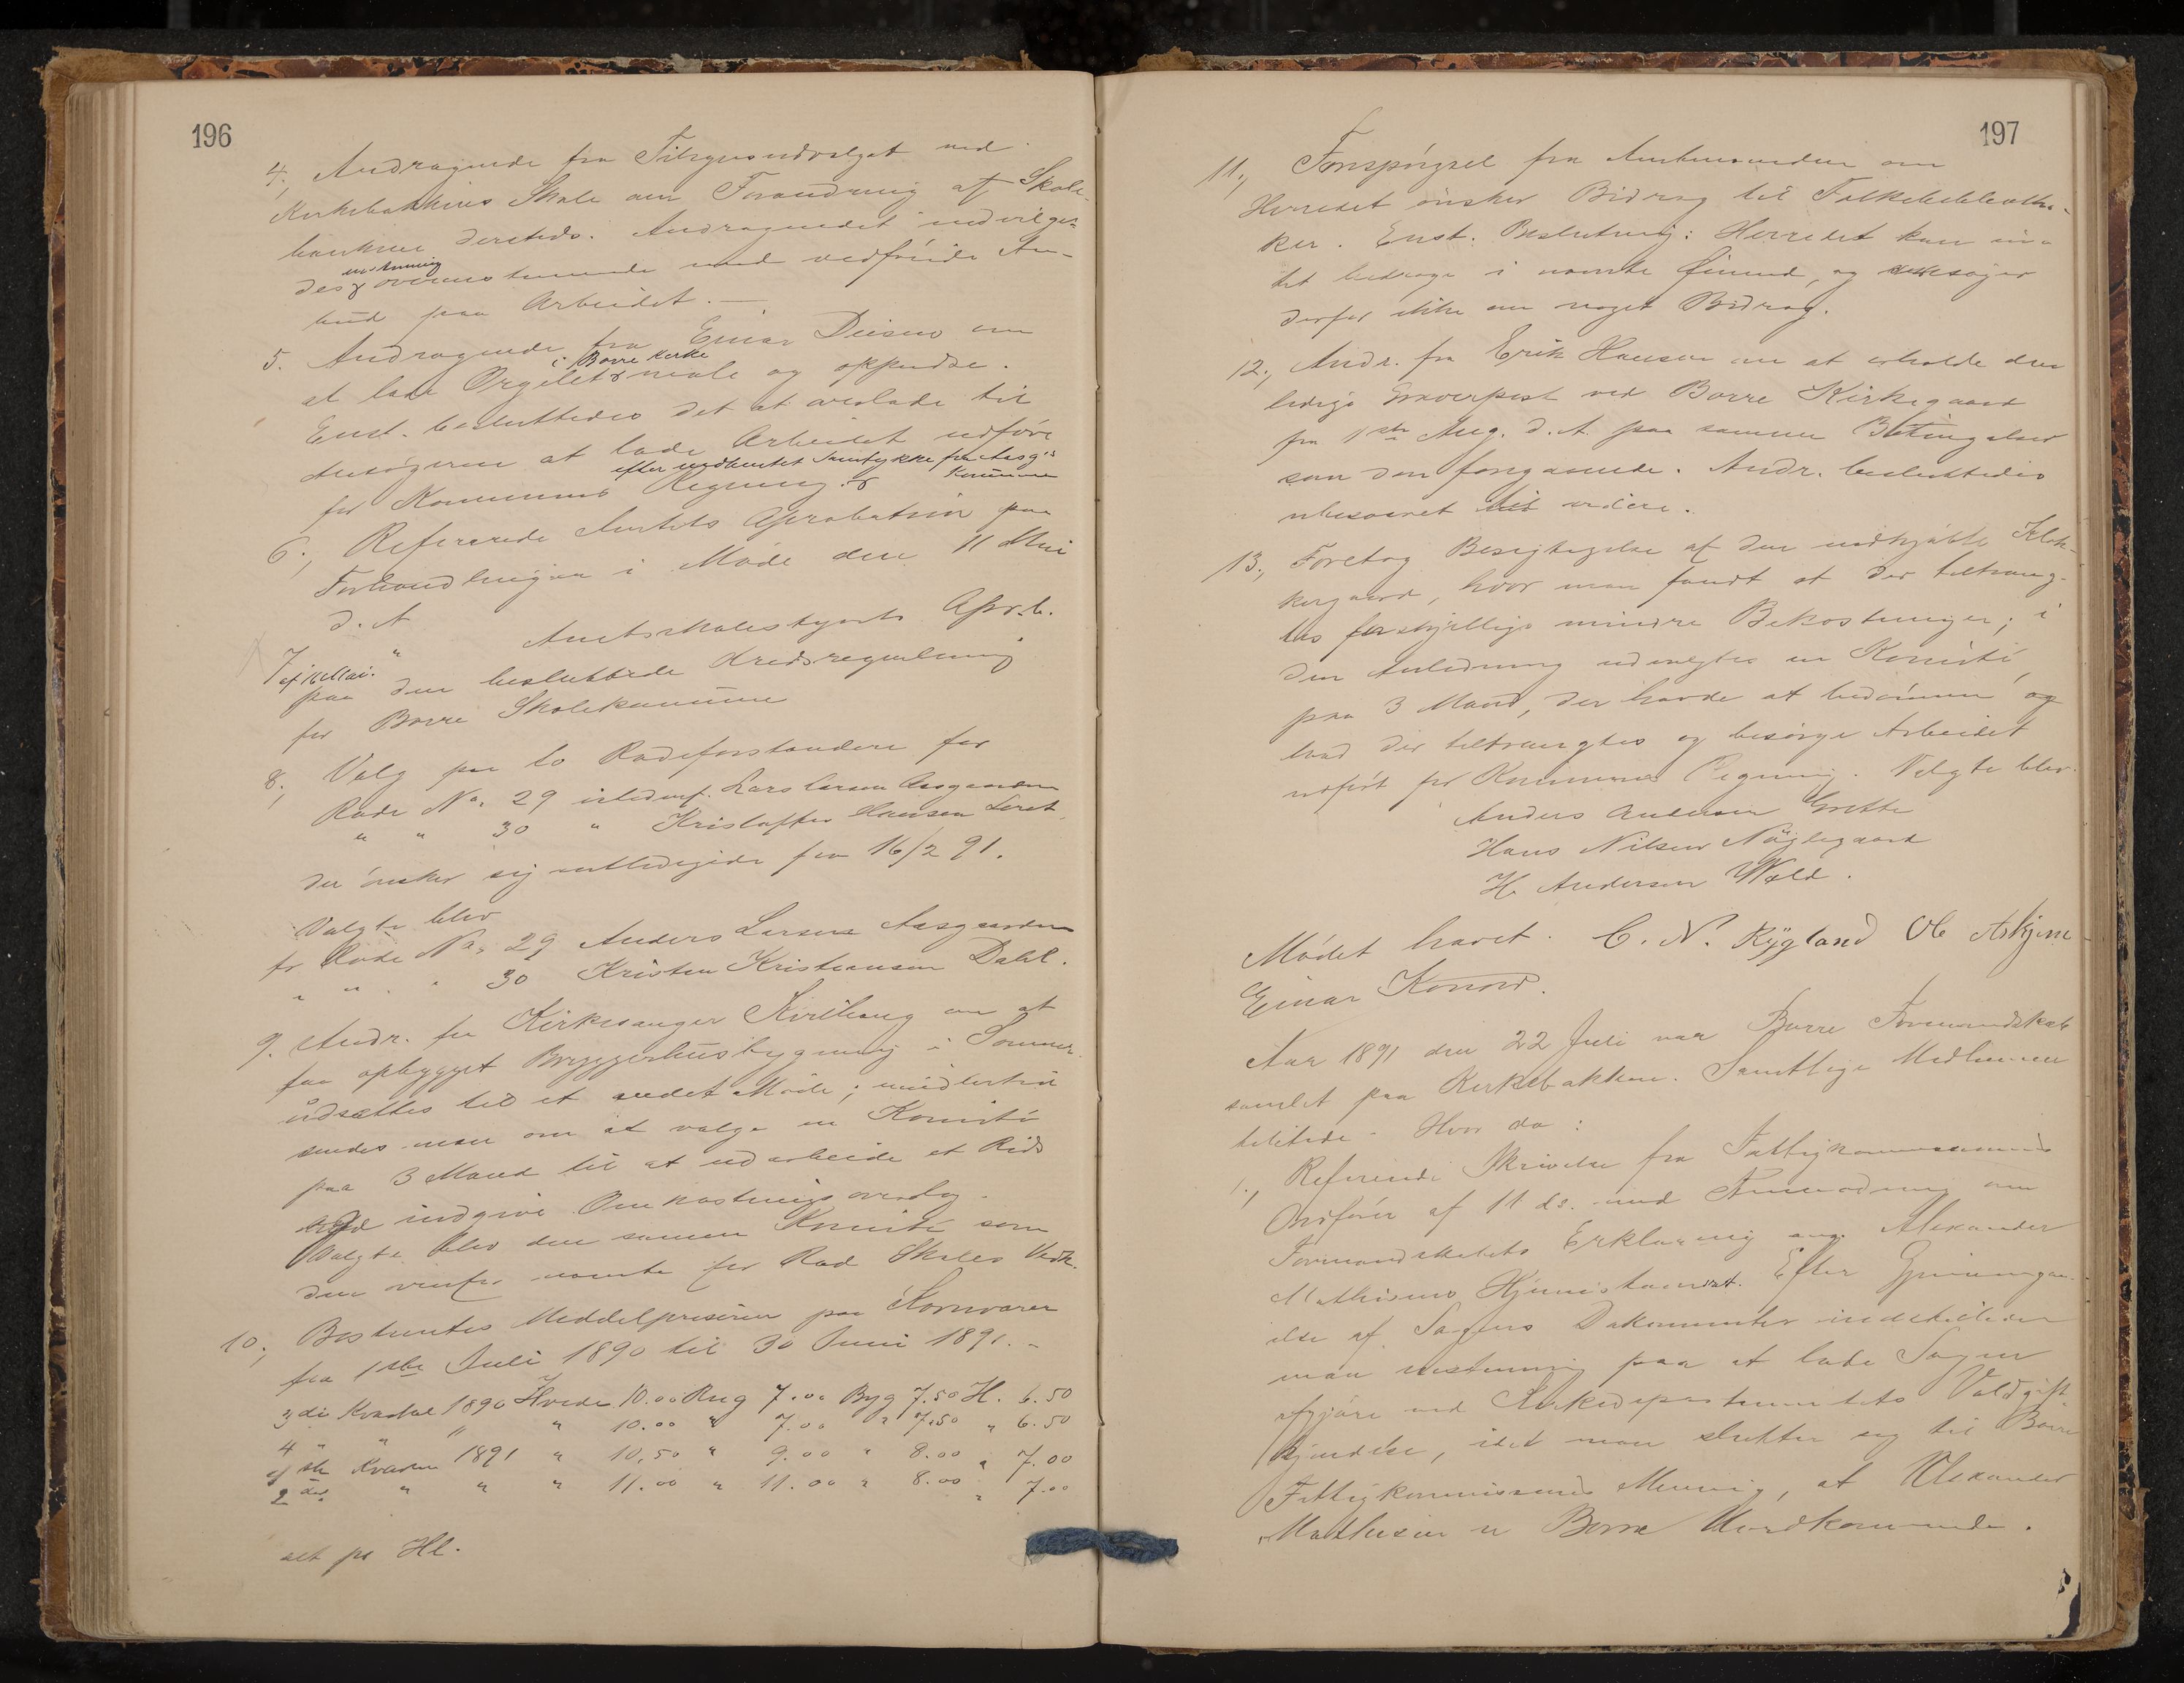 196
4., Andragende fra Tilsynsudvalget ved
Kirkebakkens Skole om Forandring af Skole-
bænkene dersteds. Andragendet indvilge-
enstemmig
des overensstemmende med vedføiede An-
bud paa Arbeidet. —
5. Andragende fra Einar Diesen om
i Borre Kirke
at lade Orgelet male og oppudse.
Enst. besluttedes det at overlade til
Ansøgeren at lade Arbeidet udføre
efter indhentet Samtykke fra Aasg's
for Kommunens Regning. Kommune
6., Refererede Amtets Aprobation paa
Forhandlingen i Møde den 11 Mai
d. A
7 af 16 Mai. " Amtsskolestyrets Aprb.
paa den besluttede Kredsregulering
for Borre Skolekommune
8., Valg paa to Rodeforstandere for
Rode No. 29 istedenf. Lars Larsen Aasgaarden
" " 30 " Kristoffer Hansen
der ønsker sig entledigede fra 16/2 91.
Valgte blev
for Rode No. 29 Anders Larsen Aasgaarden
" " " 30 Kristen Kristiansen Dahl.
9. Andr. fra Kirkesanger Kvilhaug om at
faa opbygget Bryggerhusbygning i Sommer.
udsættes til et andet Møde; imidlertid
enedes man om at vælge en Komité
paa 3 Mand til at udarbeide et Rids
indgive Omkostningsoverslag.
Valgte blev den samme Komité som
den ovenfor nævnte for Rød Skoles Vedk.
10., Bestemtes Meddelpriserne paa Kornvarer
fra 1ste Juli 1890 til 30 Juni 1891. -
3die Kvartal 1890 Hvede 10.00 Rug 7.00 Byg 7.50 H. 6.50
4 " " " " 10.00 " 7.00 " 7.50 " 6.50
1ste Kvartal 1891 " 10.50 " 9.00 " 8.00 " 7.00
2det " " " 11.00 " 11.00 " 8.00 " 7.00
alt pr Hl.
197
11., Forespørgsel fra Amtmanden om
Herredet ønsker Bidrag til Folkebibliothe-
ker. Enst. Beslutning: Herredet kan in-
tet bidrage i nævnte Øiemed, og ansøger
derfor ikke om noget Bidrag.
12., Andr. fra Erik Hansen om at erholde den
ledige Graverpost ved Borre Kirkegaard
fra 1ste Aug. d. A. paa samme Betingelser
som den forrgaaende. Andr. besluttedes
ubesvaret til videre.
13., Foretog Besigtigelse af den indkjøbte Klok-
kergaard, hvor man fandt at der tiltræng-
tes forskjellige mindre Bekostninger; i
den Anledning udvalgtes en Komité
paa 3 Mand, der havde at bedømme og
hvad der tiltrængtes og besørge Arbeidet
udført for Kommunens Regning. Valgte blev
Anders Andersen Grette
Hans Nilsen Nøglegaard
H. Andersen Wold.
Mødet hævet. C. N. Rygland Ole Askjem
Einar Konow.
Aar 1891 den 22 Juli var Borre Formandskab
samlet paa Kirkebakken. Samtlige Medlemmer
tilstede. Hvor da:
1., Refererede Skrivelse fra Fattigkommissionens
Ordfører af 11 ds. med Anmodning om
Formandskabets Erklæring ang. Alexander
Mathisens Hjemstavnsret. Efter Gjennemgaa-
else af Sagens Dokumenter indstilleder
man enstemmig paa at lade Sagen
afgjøre ved Kirkedepartementets Voldgift-
kjendelse, idet man slutter sig til Borre
Fattigkommissions Mening, at Alexander
Mathisen er Borre Uvedkommende.